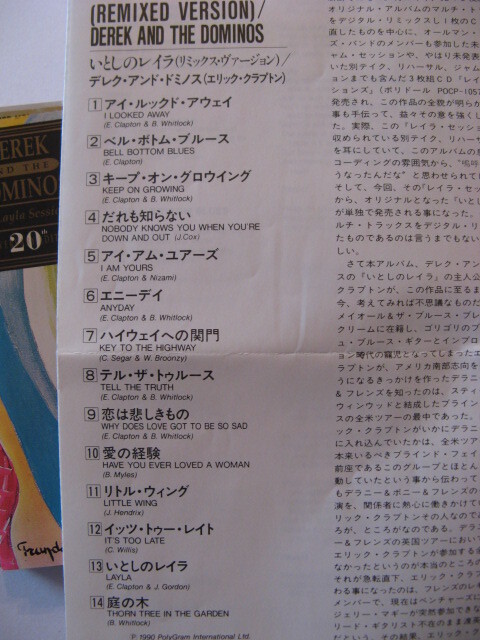 (REMIXED VERSION)/
DEREK AND THE DOMINOS
いとしのレイラ(リミックス・ヴァージョン)/
デレク・アンド・ドミノス(エリック・クラプトン)
1 アイ・ルックド・アウェイ
I LOOKED AWAY
(E. Clapton & B. Whitlock)
2 ベル・ボトム・ブルース
BELL BOTTOM BLUES
(E. Clapton)
3 キープ・オン・グロウイング
KEEP ON GROWING
(E. Clapton & B. Whitlock)
4 だれも知らない
NOBODY KNOWS YOU WHEN YOU'RE
DOWN AND OUT (J.Cox)
5 アイ・アム・ユアーズ
I AM YOURS
(E. Clapton & Nizami)
6 エニーデイ
ANYDAY
(E. Clapton & B. Whitlock)
7 ハイウェイへの関門
KEY TO THE HIGHWAY
(C. Segar & W. Broonzy)
8 テル・ザ・トゥルース
TELL THE TRUTH
(E. Clapton & B. Whitlock)
9 恋は悲しきもの
WHY DOES LOVE GOT TO BE SO SAD
(E. Clapton & B. Whitlock)
10 愛の経験
HAVE YOU EVER LOVED A WOMAN
(B. Myles)
11 リトル・ウィング
LITTLE WING
(J. Hendrix)
12 イッツ・トゥー・レイト
IT'S TOO LATE
(C. Willis)
13 いとしのレイラ
LAYLA
(E. Clapton & J. Gordon)
14 庭の木
THORN TREE IN THE GARDEN
(B. Whitlock)
℗ 1990 PolyGram International Ltd.
オリジナル・アルバムのマルチ・ト
をデジタル・リミックスし1枚のC
直したものを中心に、オールマン・
ズ・バンドのメンバーも参加した未
ャム・セッションや、やはり未発表
いた別テイク、リハーサル、ジャム
ョンまでも含んだ3枚組CD「レイ
ションズ」(ポリドール POCP-1057
発売され、この作品の全貌が明らか
事も手伝って、益々その意を強くし
た。実際、この「レイラ・セッシ
収められている別テイク、リハーサ
を耳にしていて、このアルバムの
コーディングの雰囲気から、
うなったんだな"と思わせられて
そして、今回、その「レイラ・セ
から、オリジナルとなった「いと
が単独で発売される事になった。
ルチ・トラックスをデジタル・リ
たものであるのは言うまでもない
しい。
さて本アルバム、デレク・アン
スの「いとしのレイラ」の主人公
クラプトンが、この作品に至るま
今、考えてみれば不思議なものだ
メイオール&ザ・ブルース・ブレ
クリームに在籍し、ゴリゴリのブ
ュ・ブルース・ギターとインプロ
ョン時代の寵児となってしまったエ
ラプトンが、アメリカ南部志向を
うになるきっかけを作ったデラニ
& フレンズを知ったのは、スティ
ウィンウッドと結成したブライン
スの全米ツアーの最中であった。
ック・クラプトンがいかにデラニ
に入れ込んでいたかは、全米ツア
本来いるべきブラインド・フェイ
前座であるこのグループとほとん
動していたという事から伝わって
もデラニー&ボニー&フレンズの
演を、関係者に熱心に働きかけて
リック・クラプトンその人なので
ろが、ところがなのである。デラ
ー&フレンズの英国ツアーにおい
エリック・クラプトンが参加する
なかったというのが本当のところ
それが急転直下、エリック・クラ
わる事になったのは、フレンズのレ
メンバーで、現在はベンチャーズに
ジェリー・マギーが突然参加できな
リード・ギタリスト不在のまま
だという。その結果、エリック・
DEREK
AND THE
DOMINO
Layla Sessi
20th